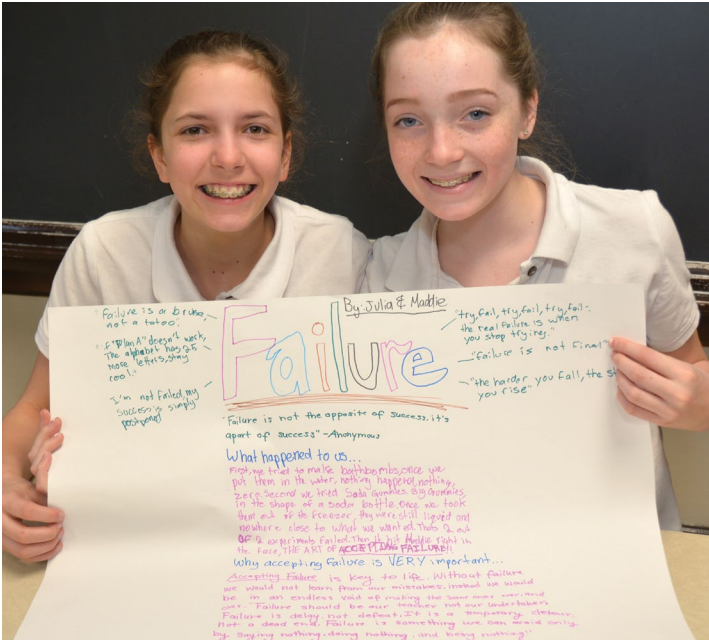 By: Julia & Maddie
Failure
"Failure is a bruise,
not a tatoo."
If "Plan A" doesn't work,
The alphabet has 25
more letters, stay
cool."
"I'm not failed, my
success is simply
postponed
"try, fail, try, fail, try, fail-
the real failure is when
you stop trying."
"failure is not Final"
"the harder you fall, the
you rise"
"Failure is not the opposite of success, it's
apart of success" -Anonymous
What happened to us...
First, we tried to make bathbombs, once we
put them in the water, nothing happened, nothing,
zero. Second we tried Soda Gummies. Big Gummies,
in the shape of a soda bottle. Once we took
them out of the freezer, they were still liqued and
nowhere close to what we wanted. Thats 2 out
OF 2 experiments failed. Then it hit Maddie right in
the face, THE ART OF ACCEPTING FAILURE!!
Why accepting Failure is VERY important...
Accepting Failure is key to life. Without failure
we would not learn from our mistakes, instead we would
be in an endless void of making the same over and
over. "Failure should be our teacher not our undertaker.
Failure is delay, not defeat. It is a temporary detour,
not a dead end. Failure is something we can avoid only
by saying nothing, doing nothing, and being nothing."